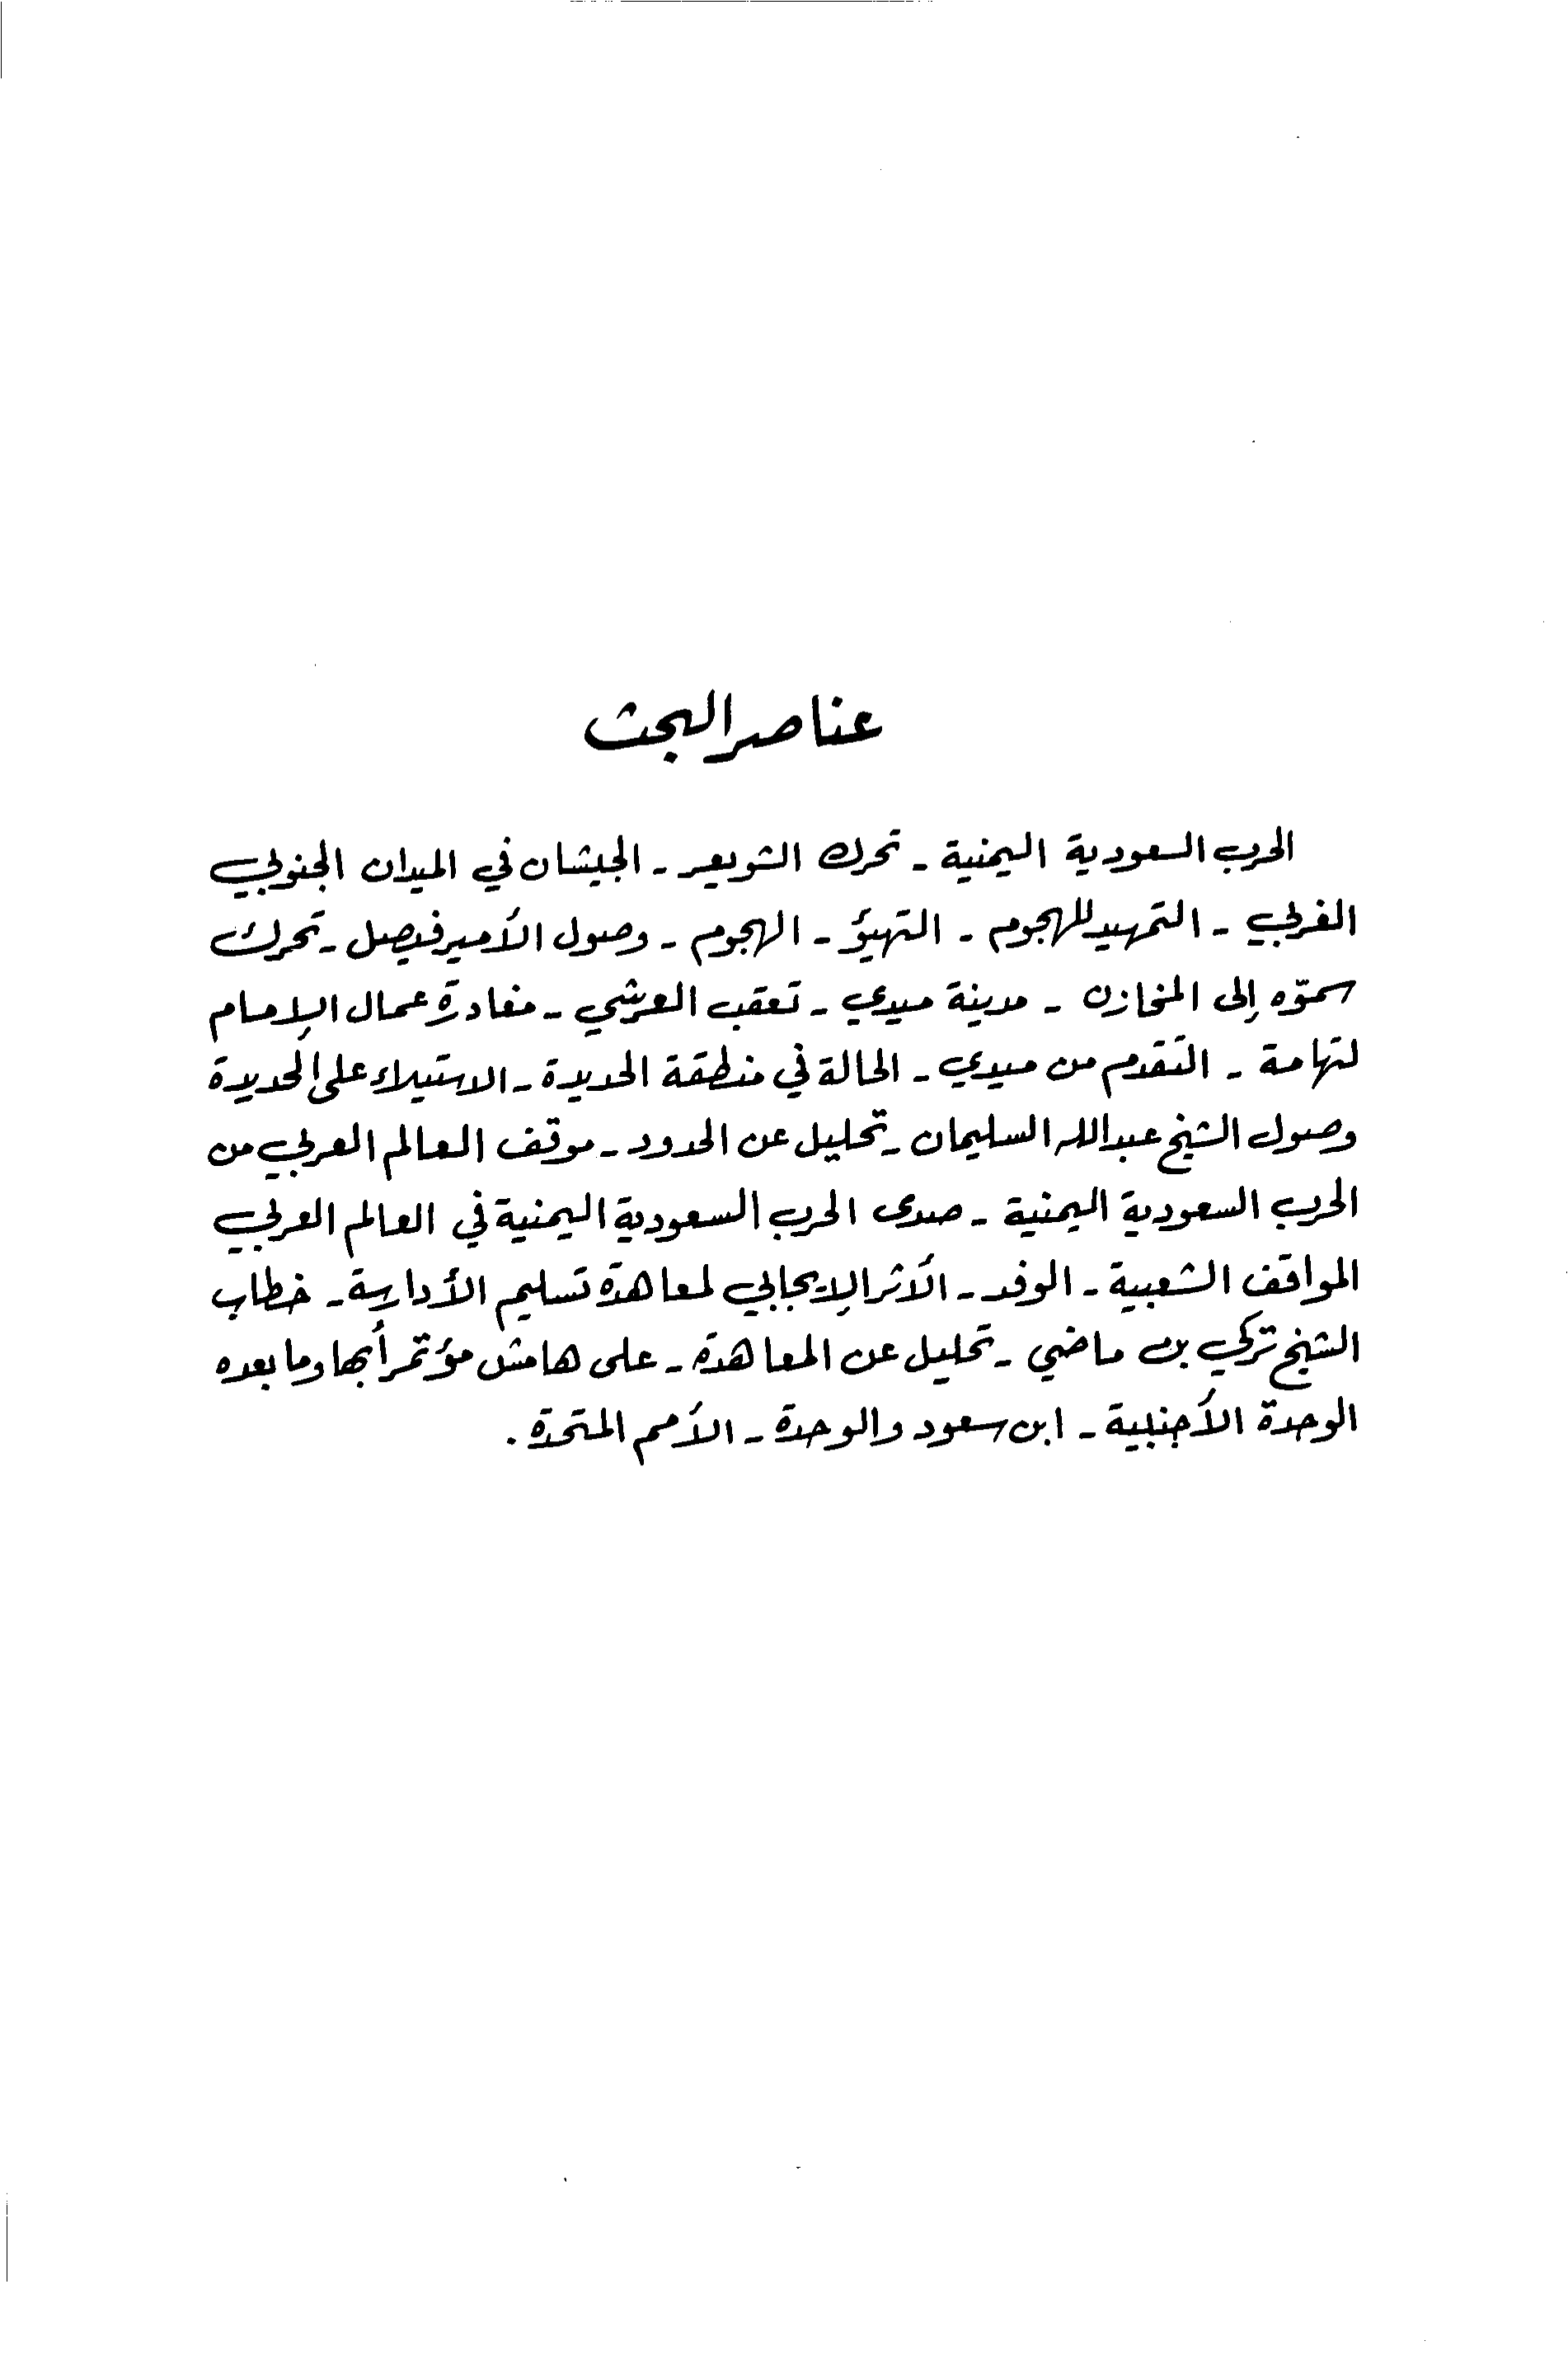 عناصر البحث
الحرب السعودية اليمنية - تحرك الشويعر - الجيشان في الميدان الجنوبي
الغربي - التمهيد للهجوم - التهيؤ - الهجوم - وصول الأمير فيصل - تحرك
سموّه إلى المخازن - مدينة ميدي - تعقب العرشي - مغادرة عمال الإمام
لتهامة - التقدم من ميدي - الحالة في منطقة الحديدة - الاستيلاء على الحديدة
وصول الشيخ عبدالله السليمان - تحليل عن الحدود - موقف العالم العربي من
الحرب السعودية اليمنية - صدى الحرب السعودية اليمنية في العالم العربي
المواقف الشعبية - الوفد - الأثر الإيجابي لمعاهدة تسليم الأدارسة - خطاب
الشيخ تركي بن ماضي - تحليل عن المعاهدة - على هامش مؤتمر أبها وما بعده
الوحدة الأجنبية - ابن سعود والوحدة - الأمم المتحدة .